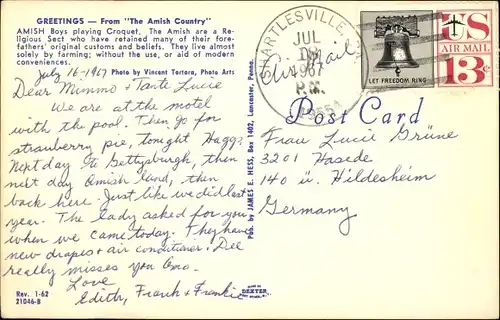 GREETINGS — From "The Amish Country"
AMISH Boys playing Croquet. The Amish are a Re-
ligious Sect who have retained many of their fore-
fathers' original customs and beliefs. They live almost
solely by farming; without the use, or aid of modern
conveniences.
Photo by Vincent Tortora, Photo Arts
July 16-1967
Dear Mimmo + Tante Lucie
We are at the motel
with the pool. Then go for
strawberry pie, tonight Hagg?
Next day to Gettysburgh, then
next day Amish land, then
back here. Just like we did last
year. The lady asked for you
when we came today. They have
new drapes + air conditioner. Dee
really misses you Omo.
Love
Edith, Frank + Frankie
Rev. 1-62
21046-B
MADE BY
DEXTER
Pub. by JAMES E. HESS, Box 1402, Lancaster, Penna.
SHARTLESVILLE, PA.
JUL
1967
P.M.
19554
Air Mail
LET FREEDOM RING
US
AIR MAIL
13c
Post Card
Frau Lucie Grüne
3201 Hasede
140 ü. Hildesheim
Germany